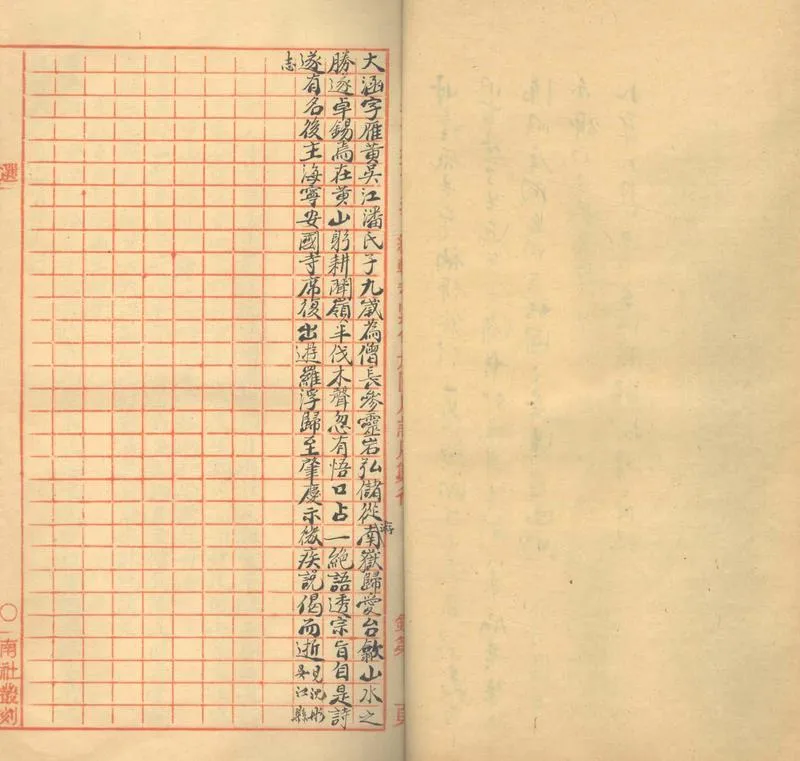 大涵字雁黃吳江潘氏子九歲為僧長參靈岩弘儲從游南嶽歸愛台歙山水之
勝遂卓錫焉在黃山躬耕闢嶺半伐木聲忽有悟口占一絶語透宗旨自是詩
遂有名後主海寧安國寺席復出遊羅浮歸至肇慶示微疾說偈而逝見沈彤吳江縣
志
選
南社叢刻